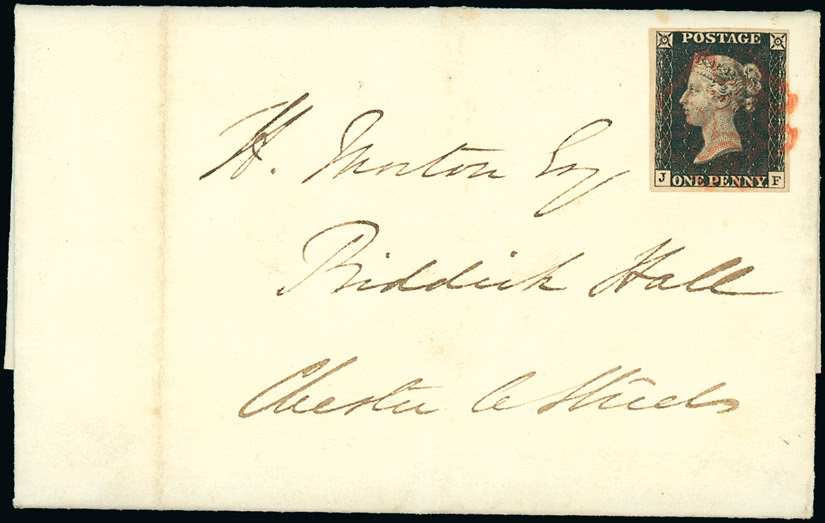 POSTAGE
J F
ONE PENNY.
H. Morton Esq
Biddick Hall
Chester le Street